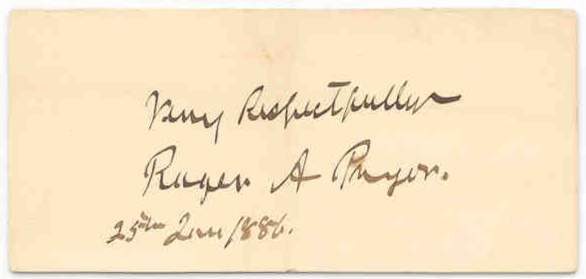 Very Respectfully
Roger A Pryor.
25th Jan 1886.